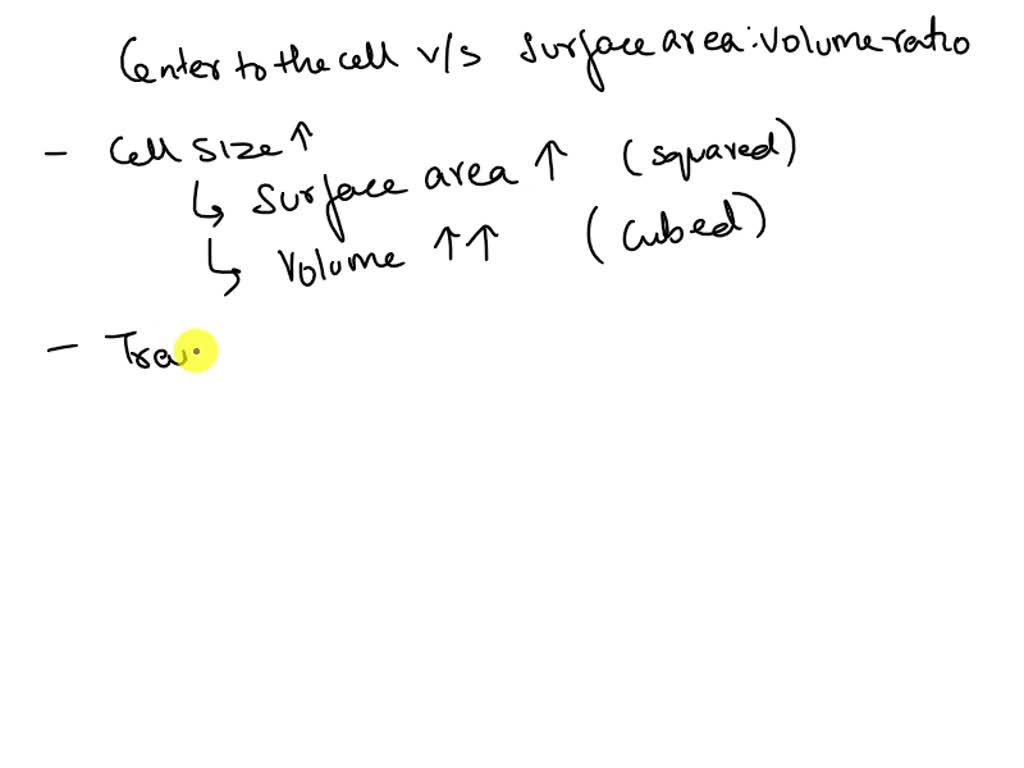 Center to the cell v/s surface area:volume ratio
- Cell size ↑
↳ surface area ↑ (squared)
↳ volume ↑↑ (cubed)
- Tra